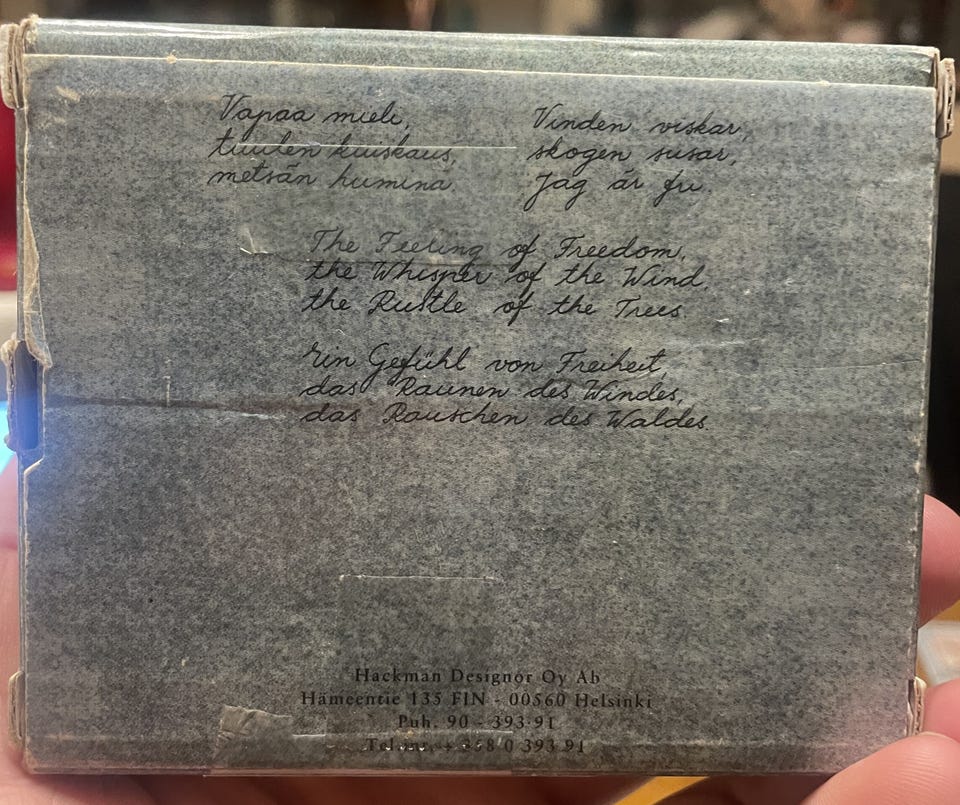 Vapaa mieli,
tuulen kuiskaus,
metsän humina.
Vinden viskar,
skogen susar,
Jag är fri.
The Feeling of Freedom,
the Whisper of the Wind,
the Rustle of the Trees.
Ein Gefühl von Freiheit,
das Raunen des Windes,
das Rauschen des Waldes.
Hackman Designor Oy Ab
Hämeentie 135 FIN - 00560 Helsinki
Puh. 90 - 393 91
Tel. nr. + 358 0 393 91